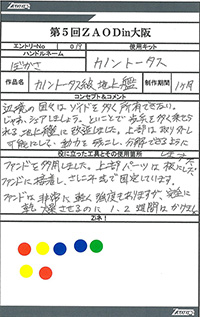 第5回ZAODin大阪
エントリーNo 013 使用キット
ハンドルネーム
ばかさ カノントータス
作品名 カノントータス級地上艦 製作期間 1ヶ月
コンセプト&コメント
辺境の国々はゾイドを多く所有できない。
じゃあ、シェアしましょう。とことで歩兵を多く乗せら
れる地上艦に改造しました。上部は取り外し
可能にして、動力を残こし、分解できるように
しました
役に立った工具とその使用箇所
ファンドを多用しました。上部パーツは板にして
ファンドに接着し、さしこみ式で固定しています。
ファンドは非常に軽く強度もありますが、完全に
乾燥させるのに1、2週間はかかります
Zi者!